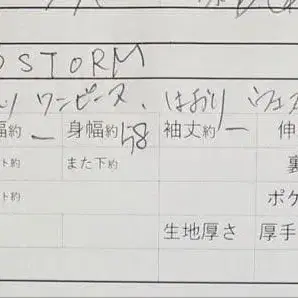 STORM
ワンピース、はおり ウェス
幅約 — 身幅約58 袖丈約 — 伸
ト約 また下約 裏
ト約 ポケ
生地厚さ 厚手